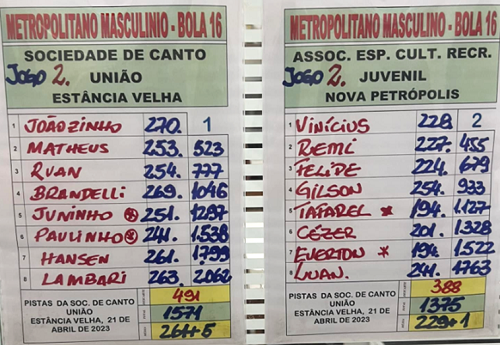 METROPOLITANO MASCULINIO - BOLA 16
SOCIEDADE DE CANTO
JOGO 2. UNIÃO
ESTÂNCIA VELHA
1 JOÃOZINHO 270. 1
2 MATHEUS 253. 523
3 RUAN 254. 777
4 BRANDELLI 269. 1046
5 JUNINHO 251. 1297
6 PAULINHO 241. 1538
7 HANSEN 261. 1799
8 LAMBARI 263. 2062
PISTAS DA SOC. DE CANTO
UNIÃO
ESTÂNCIA VELHA, 21 DE
ABRIL DE 2023
491
1571
261+5
METROPOLITANO MASCULINO - BOLA 16
ASSOC. ESP. CULT. RECR.
JOGO 2. JUVENIL
NOVA PETRÓPOLIS
1 VINÍCIUS 228 2
2 REMI 227. 455
3 FELIPE 224. 679
4 GILSON 254. 933
5 TAFAREL * 194. 1.127
6 CÉZER 201. 1.328
7 EVERTON * 194. 1.522
8 LUAN. 241. 1763
PISTAS DA SOC. DE CANTO
UNIÃO
ESTÂNCIA VELHA, 21 DE
ABRIL DE 2023
388
1375
229+1